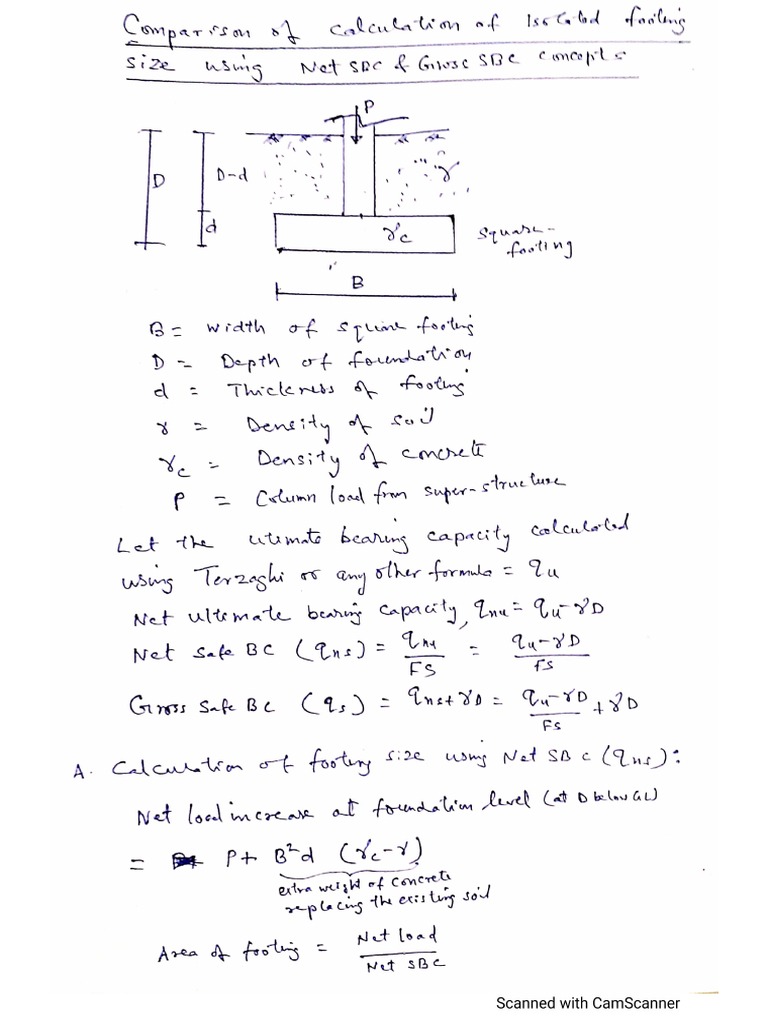 Comparison of calculation of Isolated footing
size using Net SBC & Gross SBC concepts
P
D
D-d
d
γ
γc
square
footing
B
B = width of square footing
D = Depth of foundation
d = Thickness of footing
γ = Density of soil
γc = Density of concrete
P = Column load from super-structure
Let the utimate bearing capacity calculated
using Terzaghi or any other formula = qu
Net ultimate bearing capacity, qnu = qu-γD
Net safe BC (qns) = qnu/FS = (qu-γD)/FS
Gross safe BC (qs) = qns+γD = (qu-γD)/FS + γD
A. Calculation of footing size using Net SBC (qns):
Net load increase at foundation level (at D below GL)
= P+ B²d (γc-γ)
extra weight of concrete
replacing the existing soil
Area of footing = Net load / Net SBC
Scanned with CamScanner